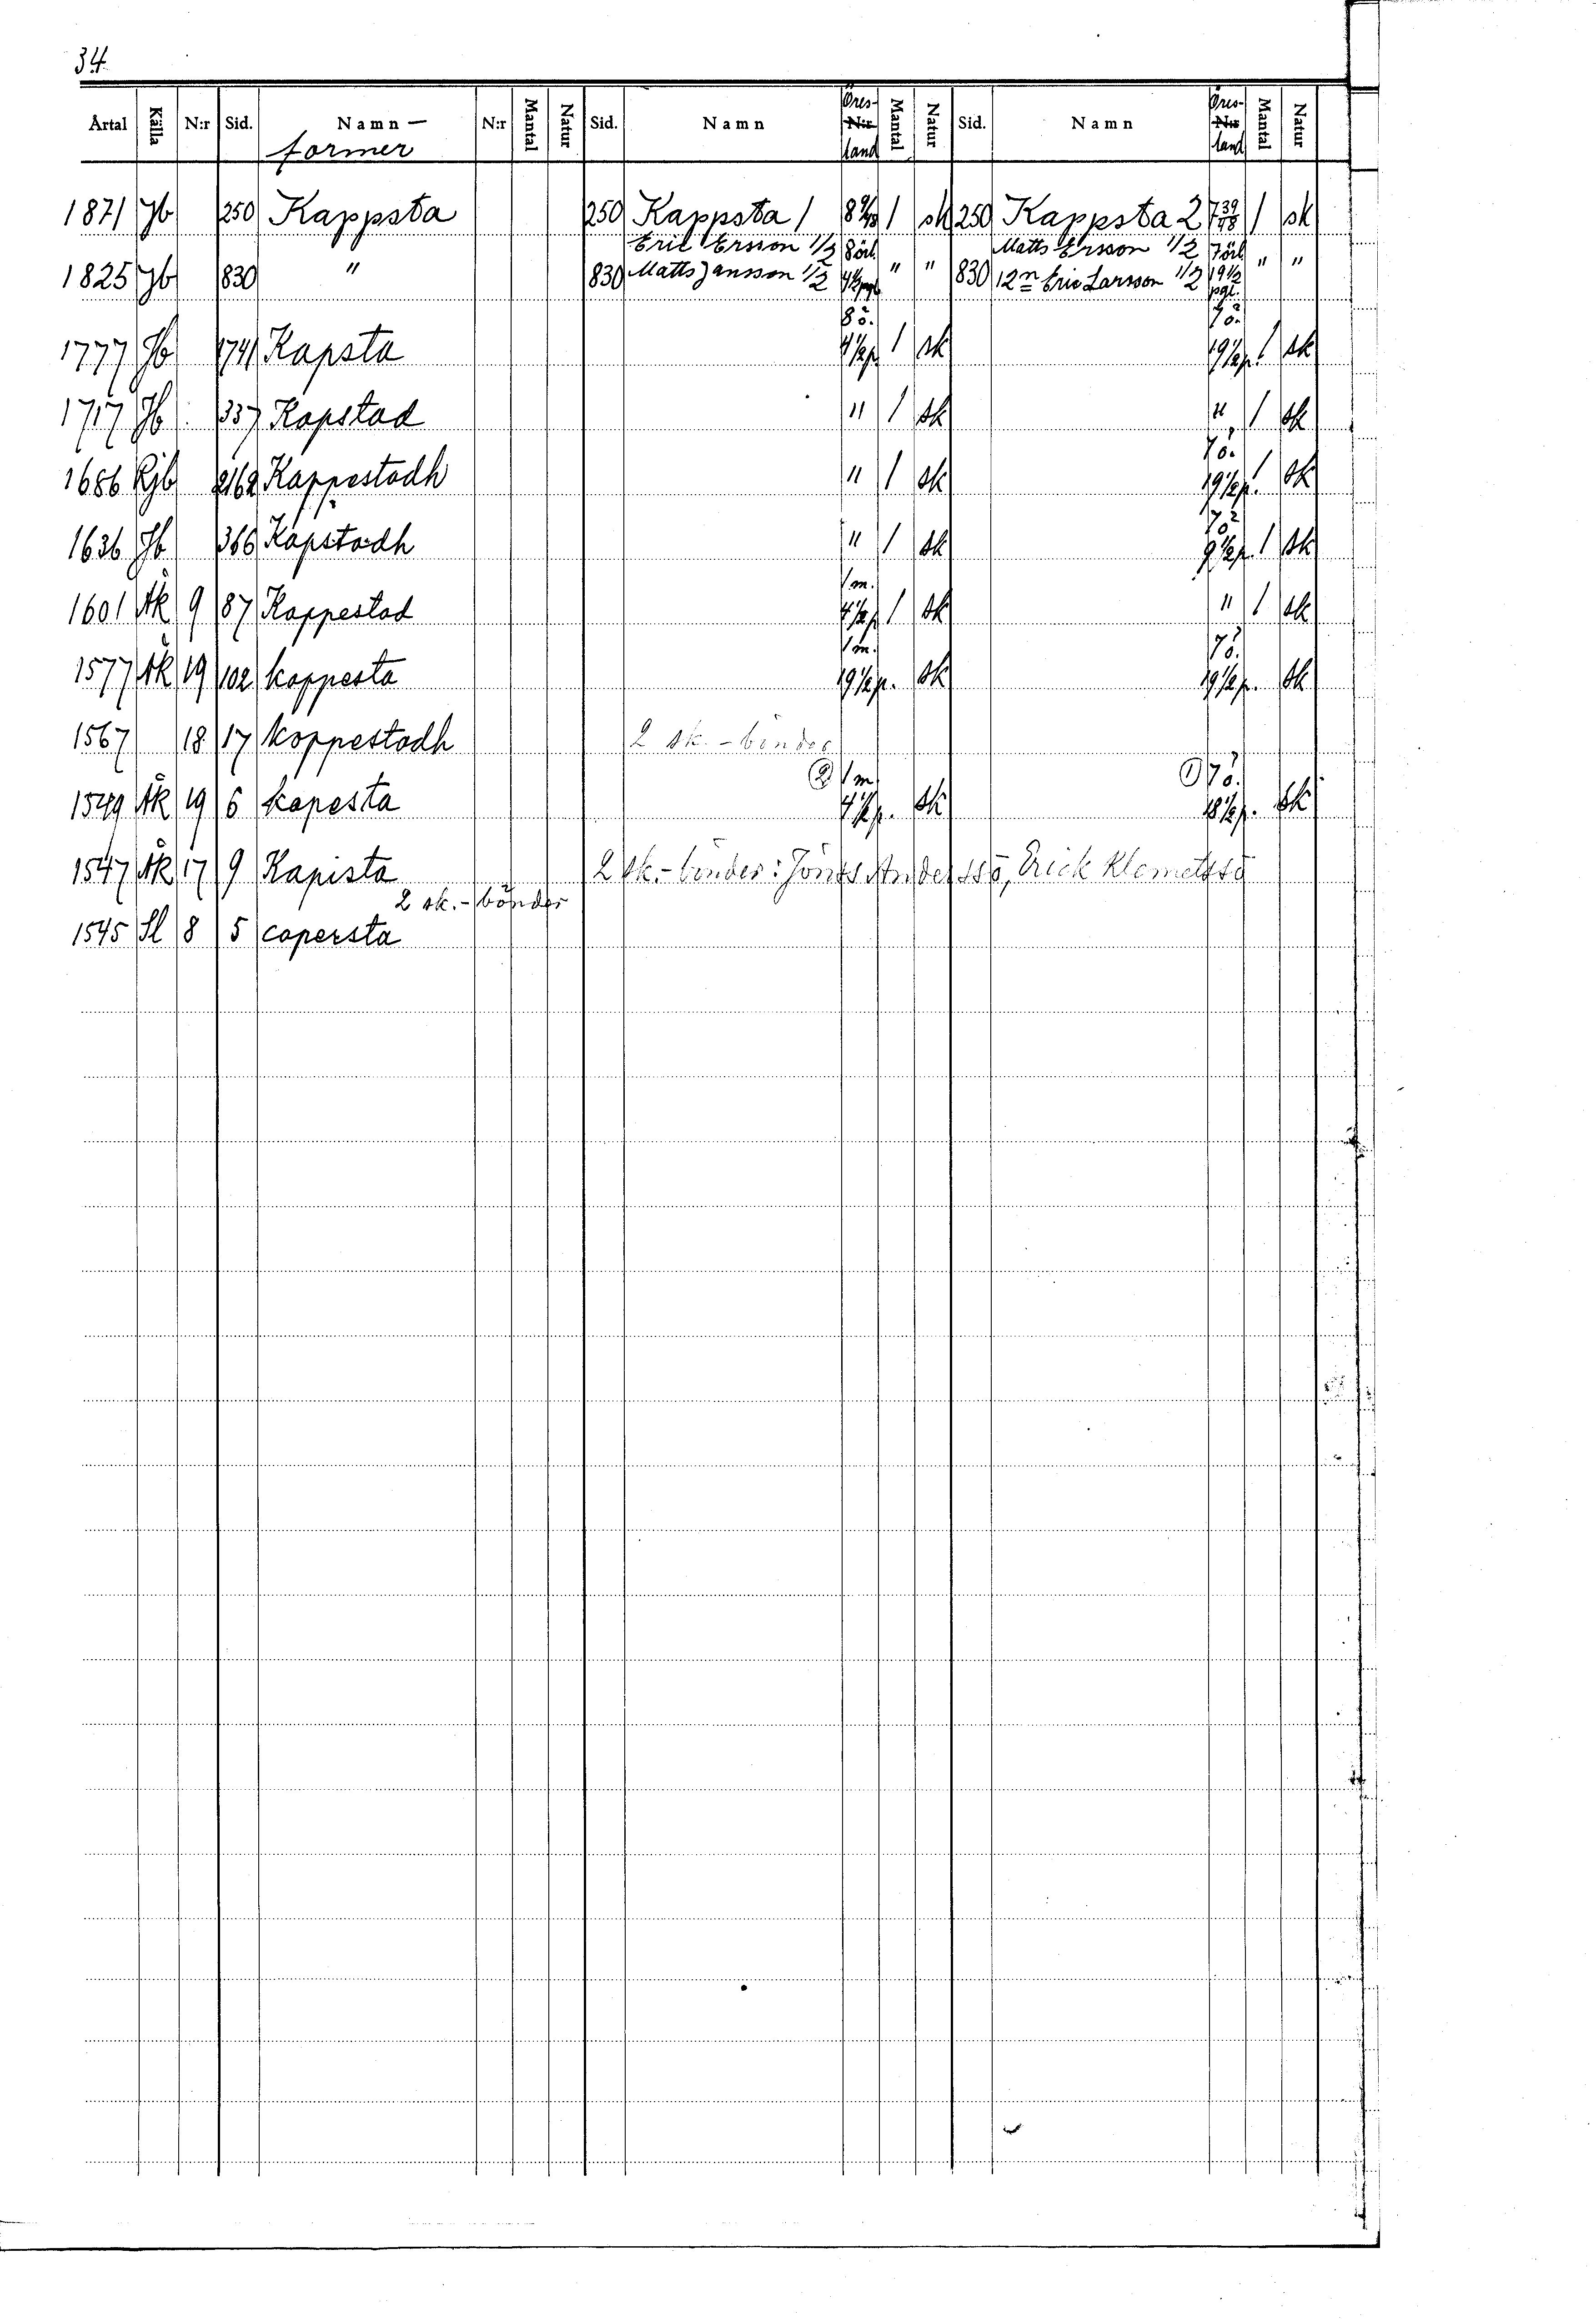 34
Årtal Källa N:r Sid. Namn- N:r Mantal Natur Sid. Namn Öres- N:r land Mantal Natur Sid. Namn Öres- N:r land Mantal Natur
former
1871 Jb 250 Kappsta 250 Kappsta 1 8 9/48 1 sk 250 Kappsta 2 7 39/48 1 sk
Eric Ersson 1/2 8 örl. Matts Ersson 1/2 7 örl.
1825 Jb 830 " 830 Matts Jansson 1/2 4 1/2 pgl. " " 830 12n Eric Larsson 1/2 19 1/2 pgl. " "
8 ö. 7 ö.
1777 Jb 1741 Kapsta 4 1/2 p. 1 sk 19 1/2 p. 1 sk
1717 Jb 337 Kapstad " 1 sk " 1 sk
7 ö.
1686 Rjb 2162 Kappestadh " 1 sk 19 1/2 p. 1 sk
7 ö.
1636 Jb 366 Kapstadh " 1 sk 9 1/2 p. 1 sk
1 m.
1601 Åk 9 87 Kappestad 4 1/2 p 1 sk " 1 sk
1 m. 7 ö.
1577 Åk 19 102 kappesta 19 1/2 p. sk 19 1/2 p. sk
1567 18 17 koppestadh 2 sk.-bönder
② 1 m. ① 7 ö.
1549 Åk 19 6 kapesta 4 1/2 p. sk 18 1/2 p. sk
1547 Åk 17 9 Kapista 2 sk.-bönder: Jöns Anderssö, Erick Klemetssö
2 sk.-bönder
1545 Sl 8 5 capersta